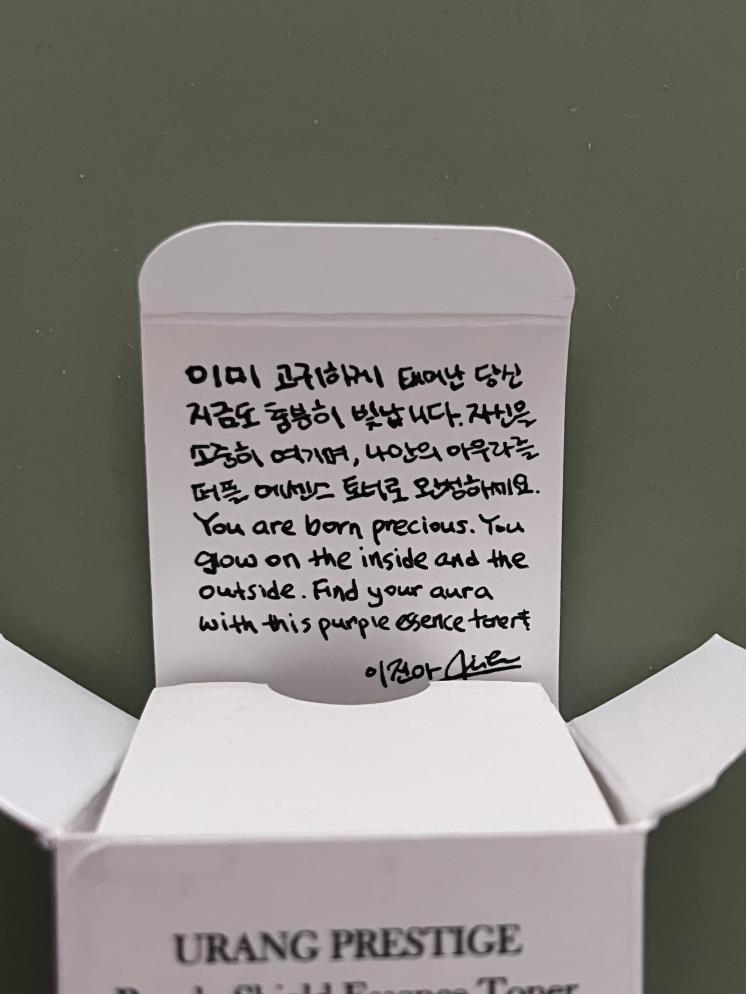 이미 고귀하게 태어난 당신
지금도 충분히 빛납니다. 자신을
소중히 여기며, 나만의 아우라를
퍼플 에센스 토너로 완성하세요.
You are born precious. You
glow on the inside and the
outside. Find your aura
with this purple essence toner
이진아
URANG PRESTIGE
Purple Shield Essence Toner